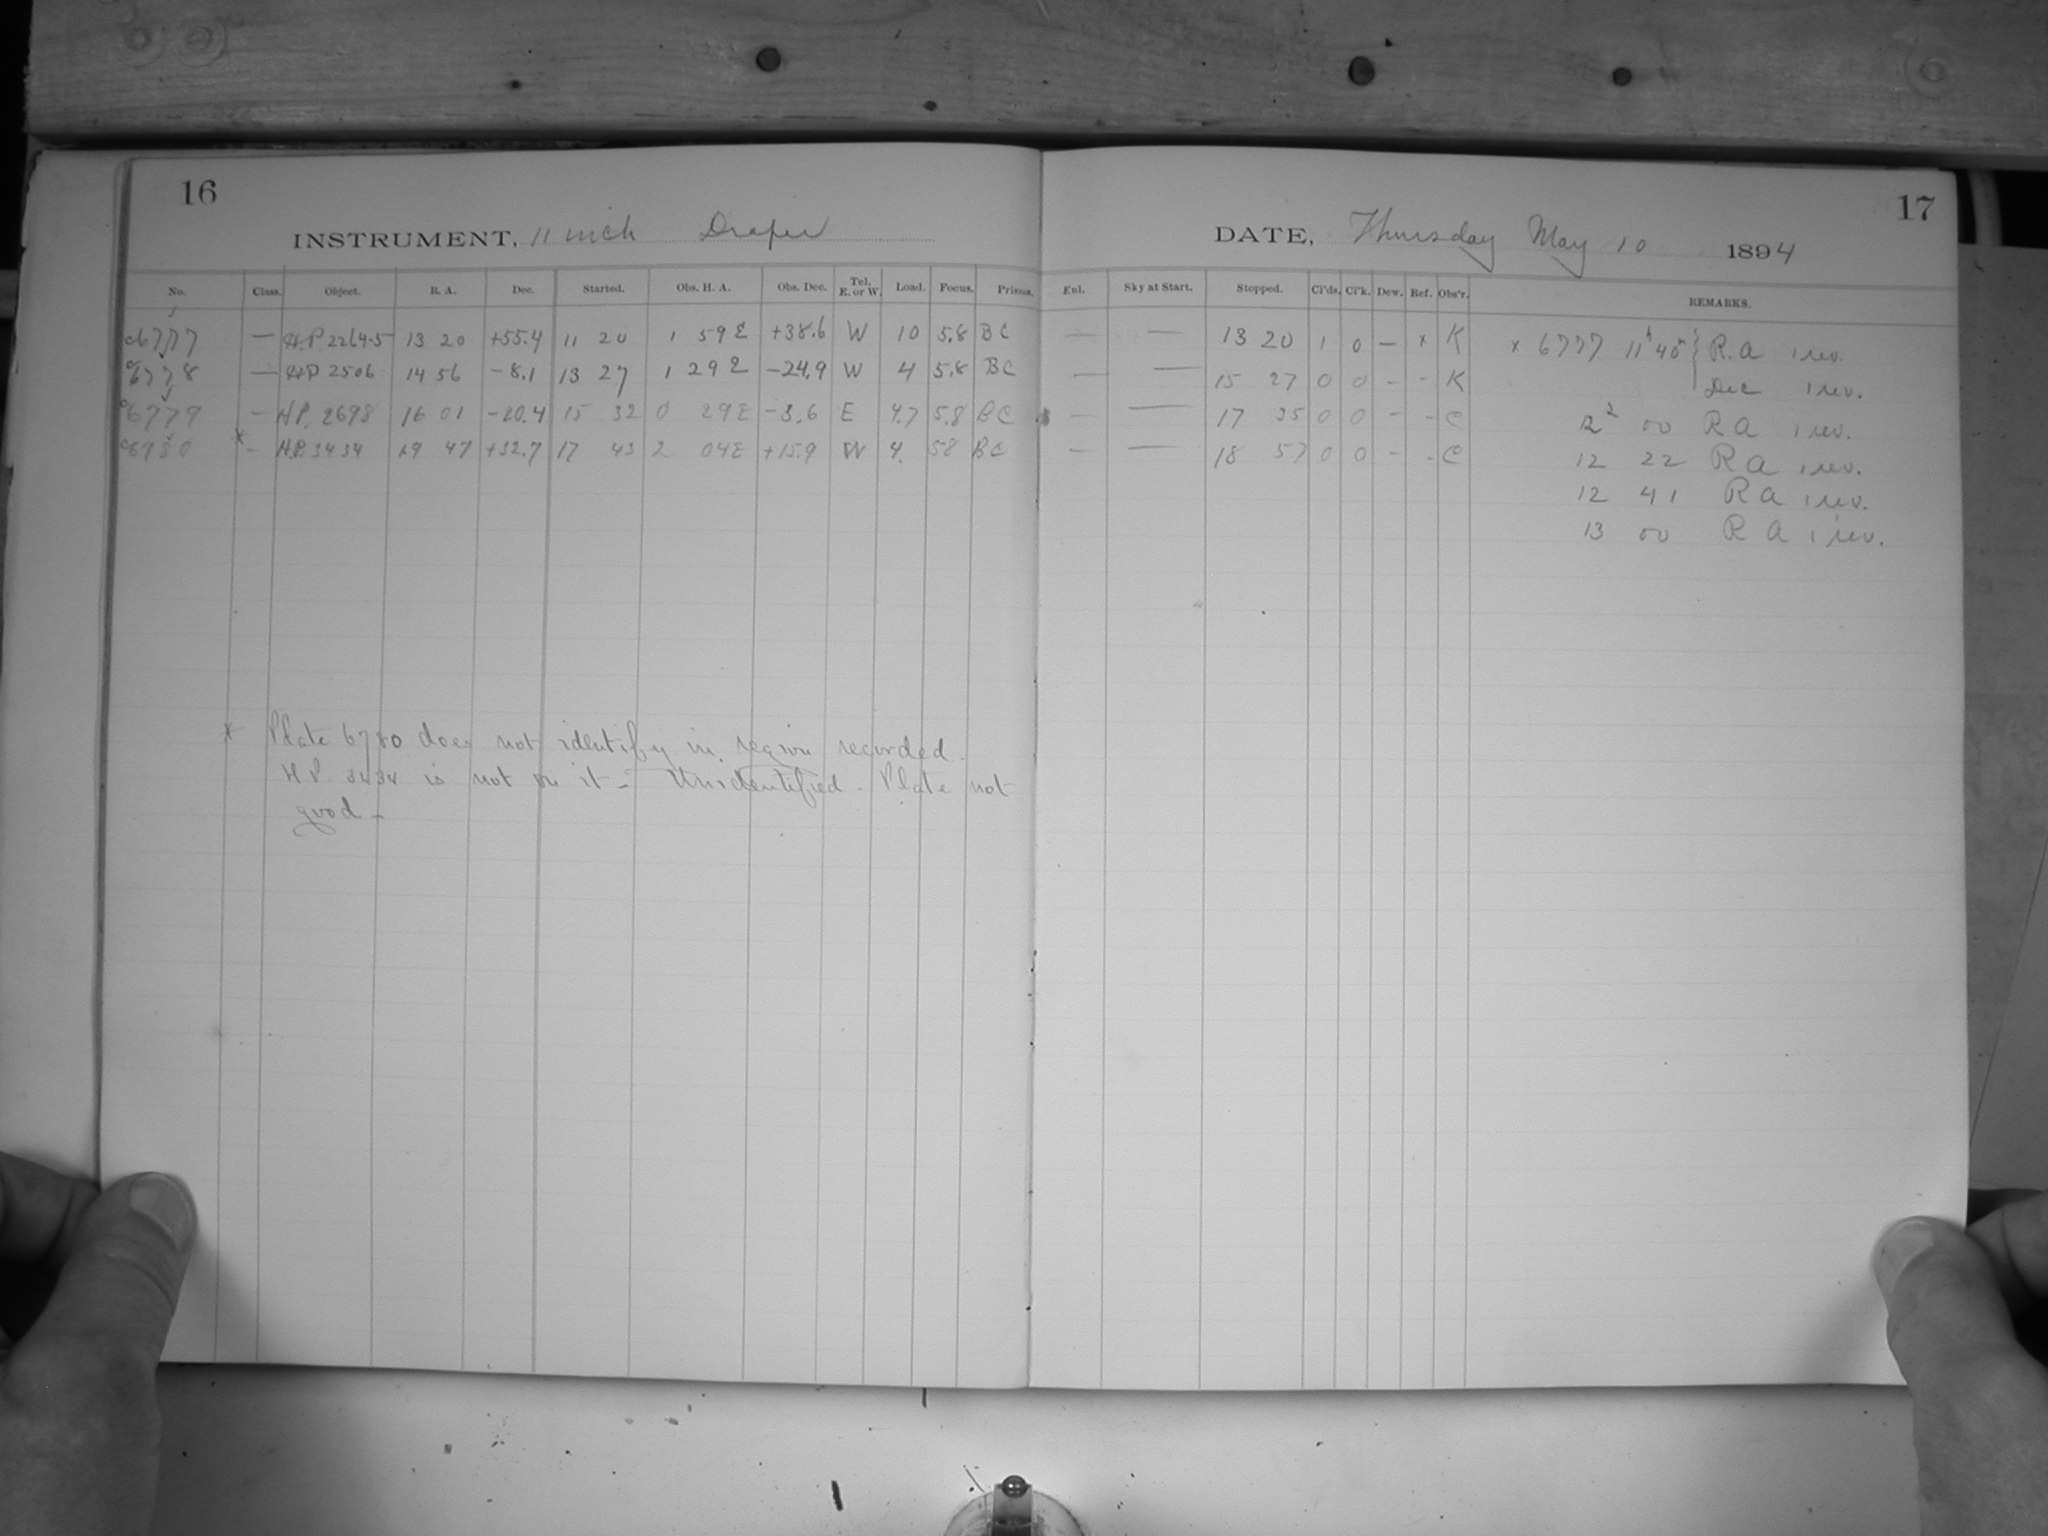 16
INSTRUMENT, 11 inch Draper
No. Class. Object. R. A. Dec. Started. Obs. H. A. Obs. Dec. Tel. E. or W. Load. Focus. Prisms.
6777 — H.P. 2264-5 13 20 +55.4 11 20 1 59 E +38.6 W 10 5.8 BC
6778 — HP 2506 14 56 -8.1 13 27 1 29 E -24.9 W 4 5.8 BC
6779 — H.P. 2698 16 01 -20.4 15 32 0 29 E -3.6 E 4.7 5.8 BC
6780 * - H.P. 3434 19 47 +32.7 17 43 2 04 E +15.9 W 4. 58 BC
* Plate 6780 does not identify in region recorded.
H P. 3434 is not on it - Unidentified - Plate not
good -
17
DATE, Thursday May 10 1894
Enl. Sky at Start. Stopped. Cl'ds. Cl'k. Dew. Ref. Obs'r. REMARKS.
— — 13 20 1 0 — x K x 6777 11h 45 R.A 1 rev.
— — 15 27 0 0 - - K Dec 1 rev.
— — 17 35 0 0 - - C 12 00 R A 1 rev.
— — 18 57 0 0 - - C 12 22 R A 1 rev.
12 41 R A 1 rev.
13 00 R A 1 rev.